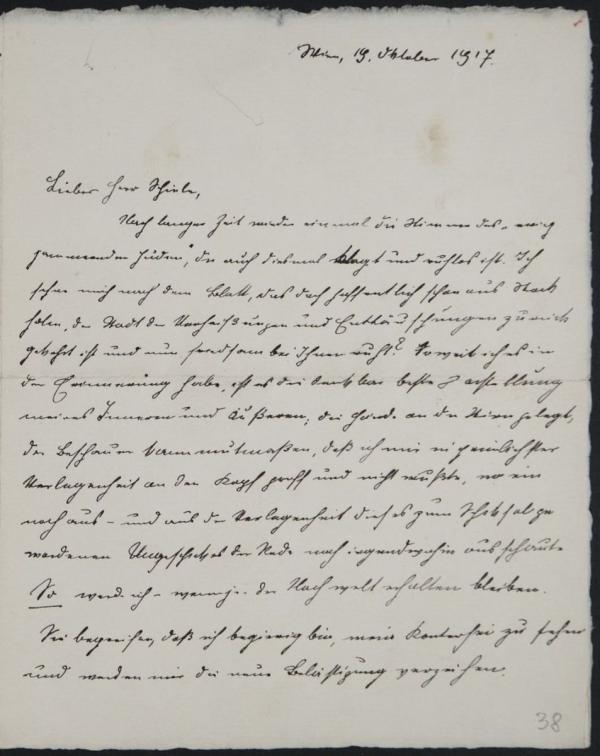 Wien, 19. Oktober 1917.
Lieber Herr Schiele,
Nach langer Zeit wieder einmal die Stimme des „ewig
jammernden Juden“, der auch diesmal klagt und ruhlos ist. Ich
sehne mich nach dem Blatt, das doch hoffentlich schon aus Stock
holm, der Stadt der Verheißungen und Enttäuschungen zurück
gekehrt ist und nun friedsam bei Ihnen ruht? Soweit ich es in
der Erinnerung habe, ist es die denkbar beste Darstellung
meines Inneren und Äußeren; die Hände an die Stirn gelegt,
der Beschauer kann mutmaßen, daß ich mir in peinlichster
Verlegenheit an den Kopf griff und nicht wußte, wo ein
noch aus – und aus der Verlegenheit dieses zum Schicksal ge
wordenen Ungeschickes der Rede nach irgendwohin ausschaute
So werde ich – wenn je – der Nachwelt erhalten bleiben.
Sie begreifen, daß ich begierig bin, mein Konterfei zu sehen
und werden mir die neue Belästigung verzeihen.
38